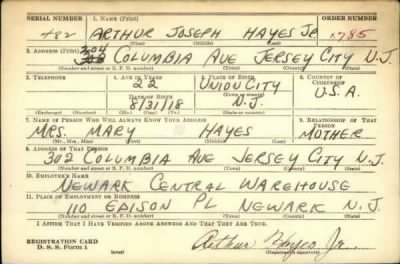 SERIAL NUMBER 1. NAME (Print) ORDER NUMBER
482 ARTHUR JOSEPH HAYES JR 1785
(First) (Middle) (Last)
2. ADDRESS (Print)
204 COLUMBIA AVE JERSEY CITY N.J.
(Number and street or R. F. D. number) (Town) (County) (State)
3. TELEPHONE 4. AGE IN YEARS 5. PLACE OF BIRTH 6. COUNTRY OF CITIZENSHIP
22 UNION CITY
DATE OF BIRTH U.S.A.
8/31/18 N.J.
(Exchange) (Number) (Mo.) (Day) (Yr.) (State or country)
7. NAME OF PERSON WHO WILL ALWAYS KNOW YOUR ADDRESS 8. RELATIONSHIP OF THAT PERSON
MRS. MARY HAYES MOTHER
(Mr., Mrs., Miss) (First) (Middle) (Last)
9. ADDRESS OF THAT PERSON
302 COLUMBIA AVE JERSEY CITY N.J.
(Number and street or R. F. D. number) (Town) (County) (State)
10. EMPLOYER'S NAME
NEWARK CENTRAL WAREHOUSE
11. PLACE OF EMPLOYMENT OR BUSINESS
110 EDISON PL NEWARK N.J.
(Number and street or R. F. D. number) (Town) (County) (State)
I AFFIRM THAT I HAVE VERIFIED ABOVE ANSWERS AND THAT THEY ARE TRUE.
REGISTRATION CARD
D. S. S. Form 1 (over) Arthur Hayes Jr.
(Registrant's signature)